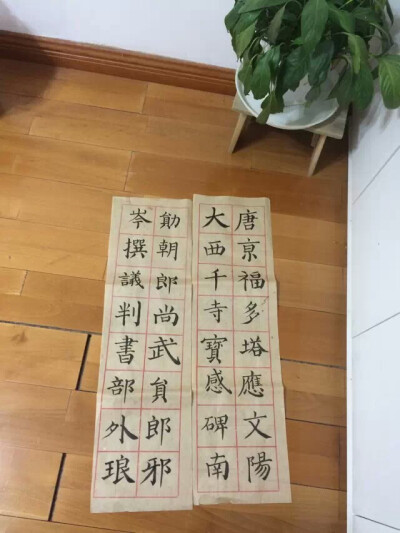 大唐
西京
千福
寺多
寶塔
感應
碑文
南陽
岑勛
撰朝
議郎
判尚
書武
部員
外郎
琅邪